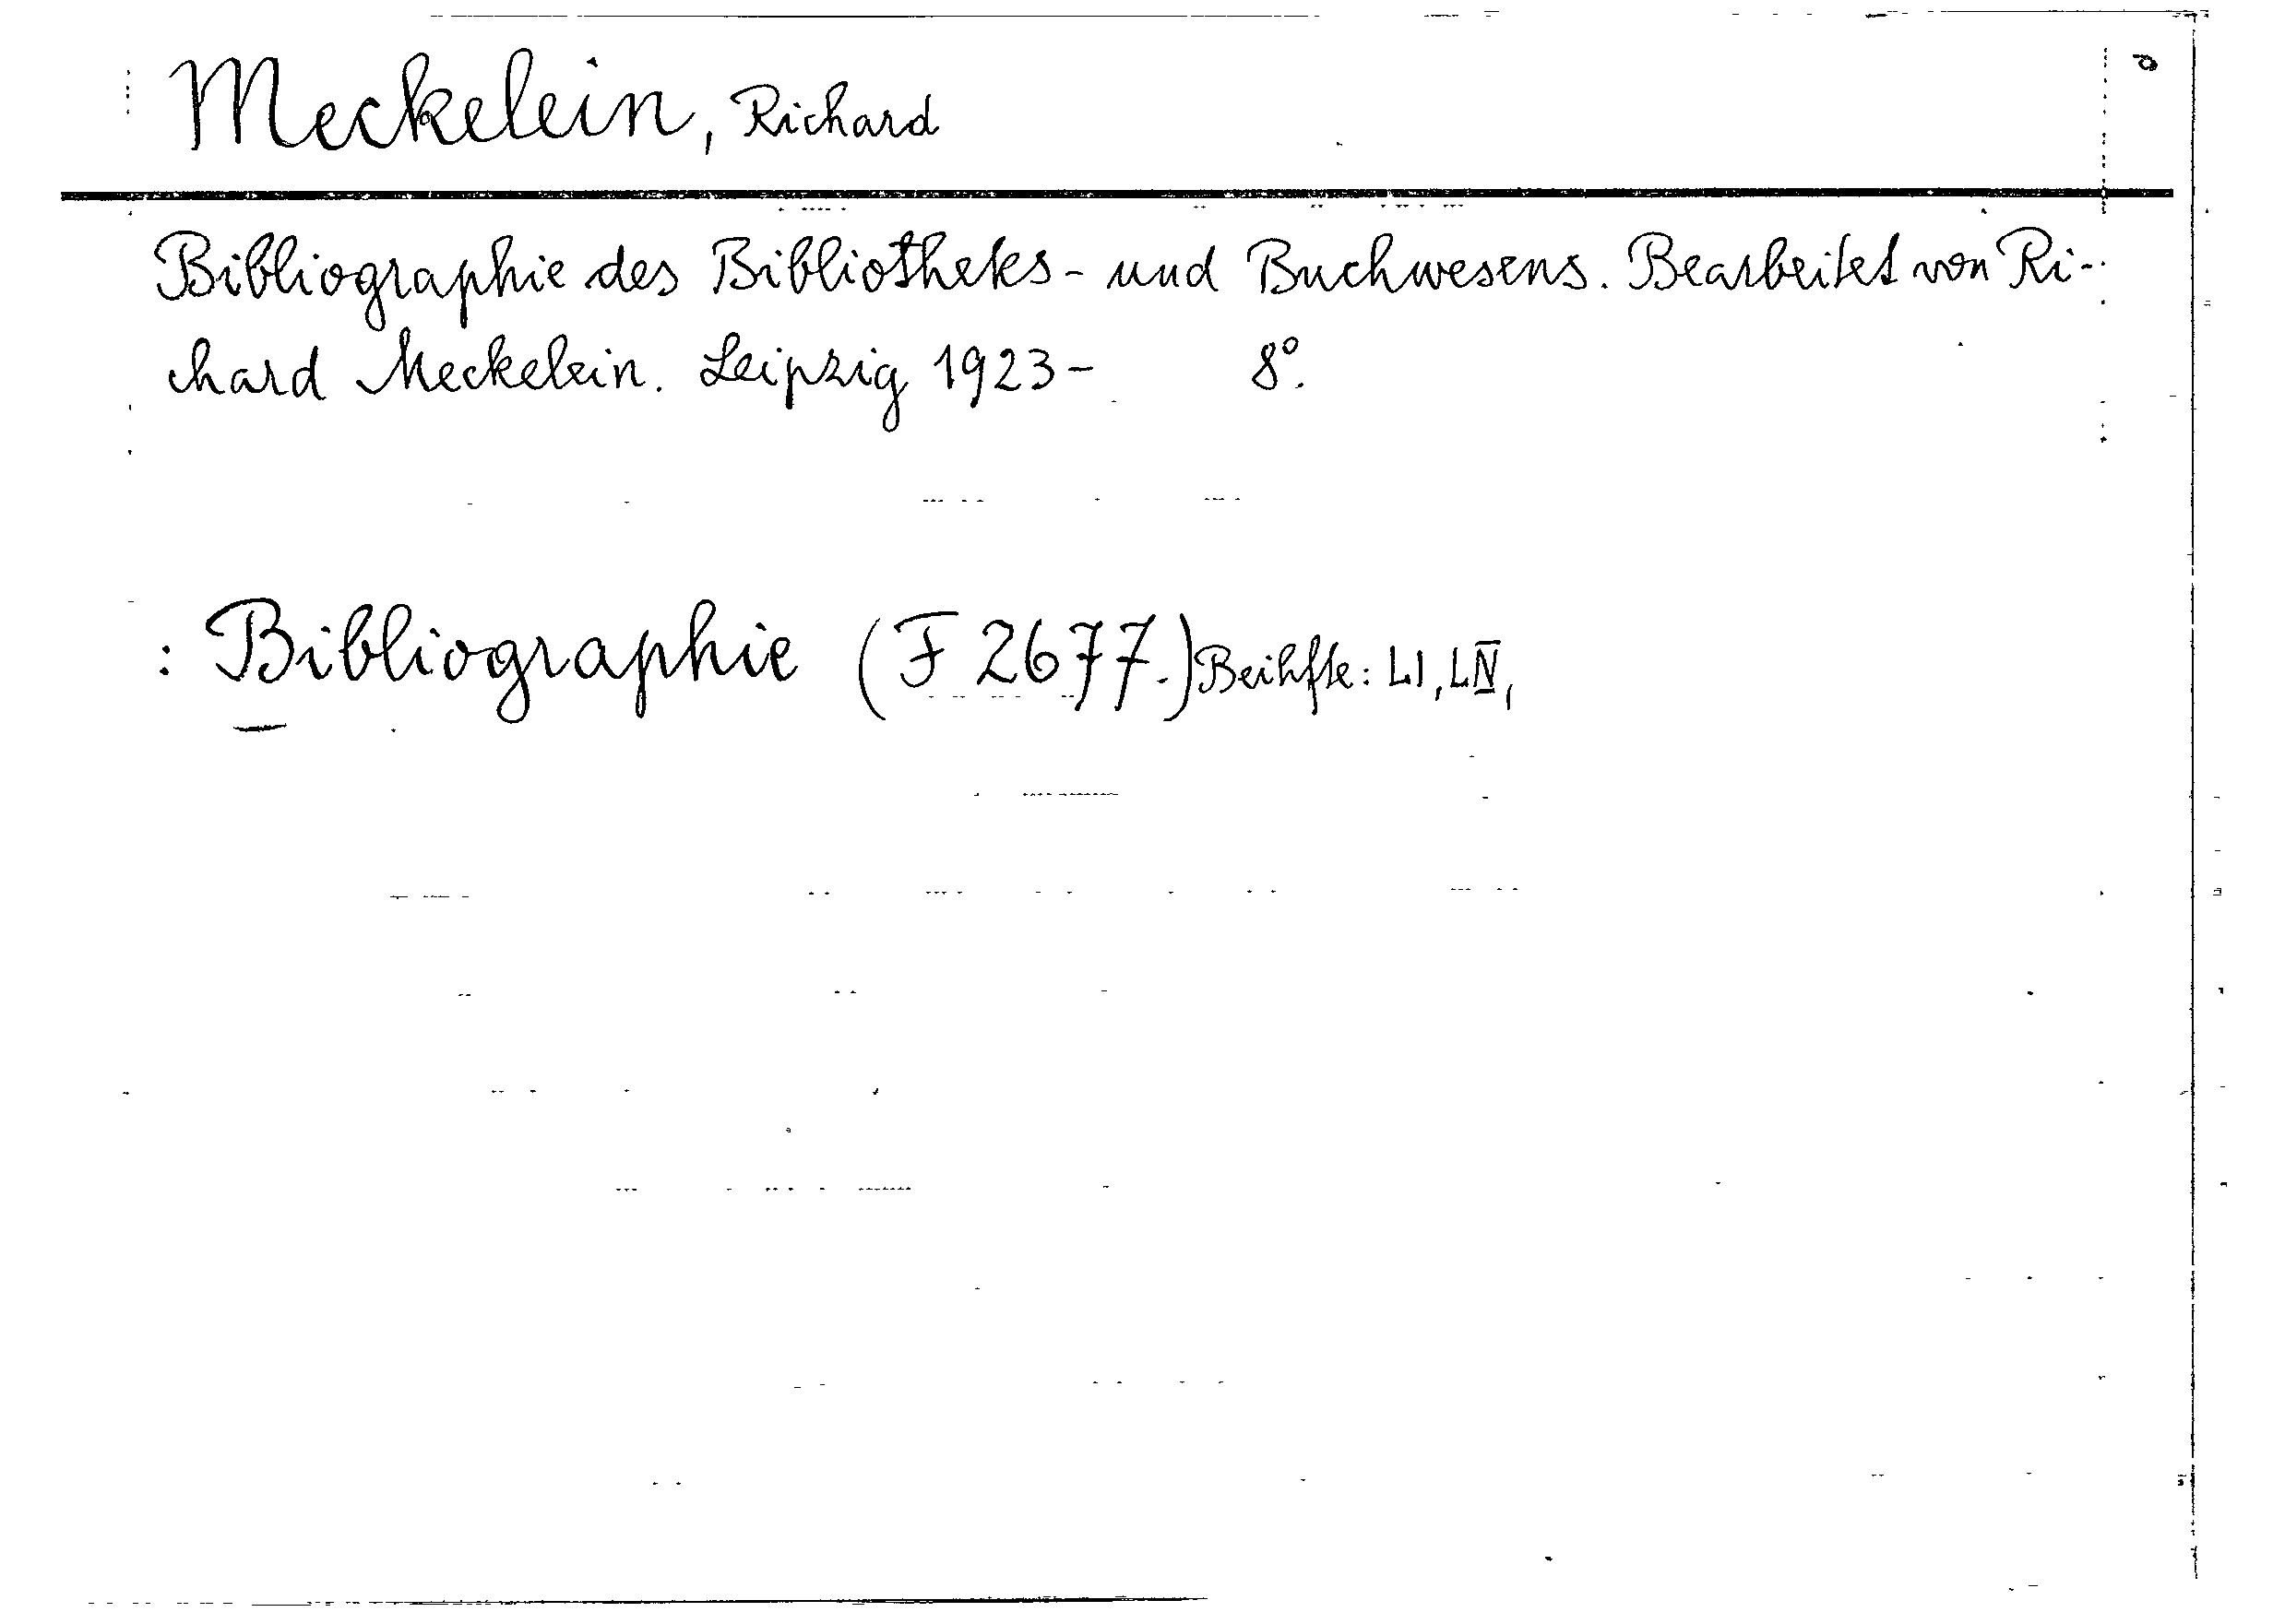 Meckelein, Richard
Bibliographie des Bibliotheks- und Buchwesens. Bearbeitet von Ri-
chard Meckelein. Leipzig 1923- 8°.
: Bibliographie (F 2677.) Beihfte: LI, LIV,